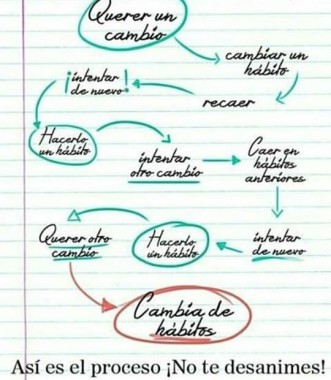 Querer un
cambio
cambiar un
hábito
recaer
¡intentar
de nuevo!
Hacerlo
un hábito
intentar
otro cambio
Caer en
hábitos
anteriores
intentar
de nuevo
Hacerlo
un hábito
Querer otro
cambio
Cambia de
hábitos
Así es el proceso ¡No te desanimes!